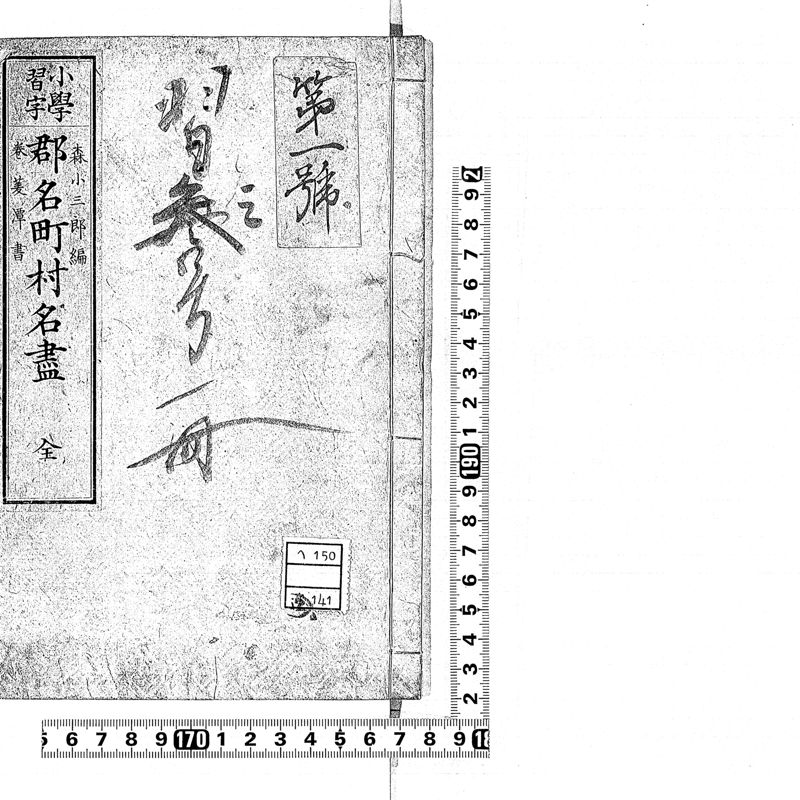 第一號
習
参号
之
一冊
小學
習字
森小三郎編
郡名町村名盡 全
卷菱潭書
へ 150
141
2
9
8
7
6
5
4
3
2
1
190
9
8
7
6
5
4
3
2
5 6 7 8 9 170 1 2 3 4 5 6 7 8 9 18